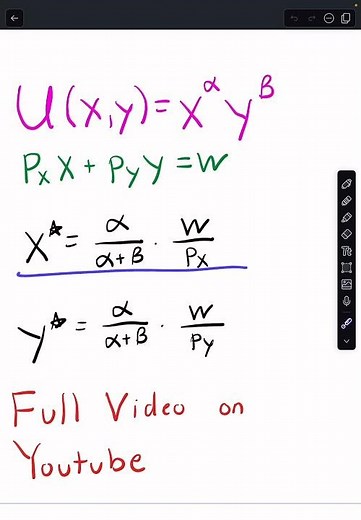 U(x,y)=x^α y^β
Pₓ X + P_y y = W
X* = α/(α+β) · W/Pₓ
y* = α/(α+β) · W/P_y
Full Video on
Youtube